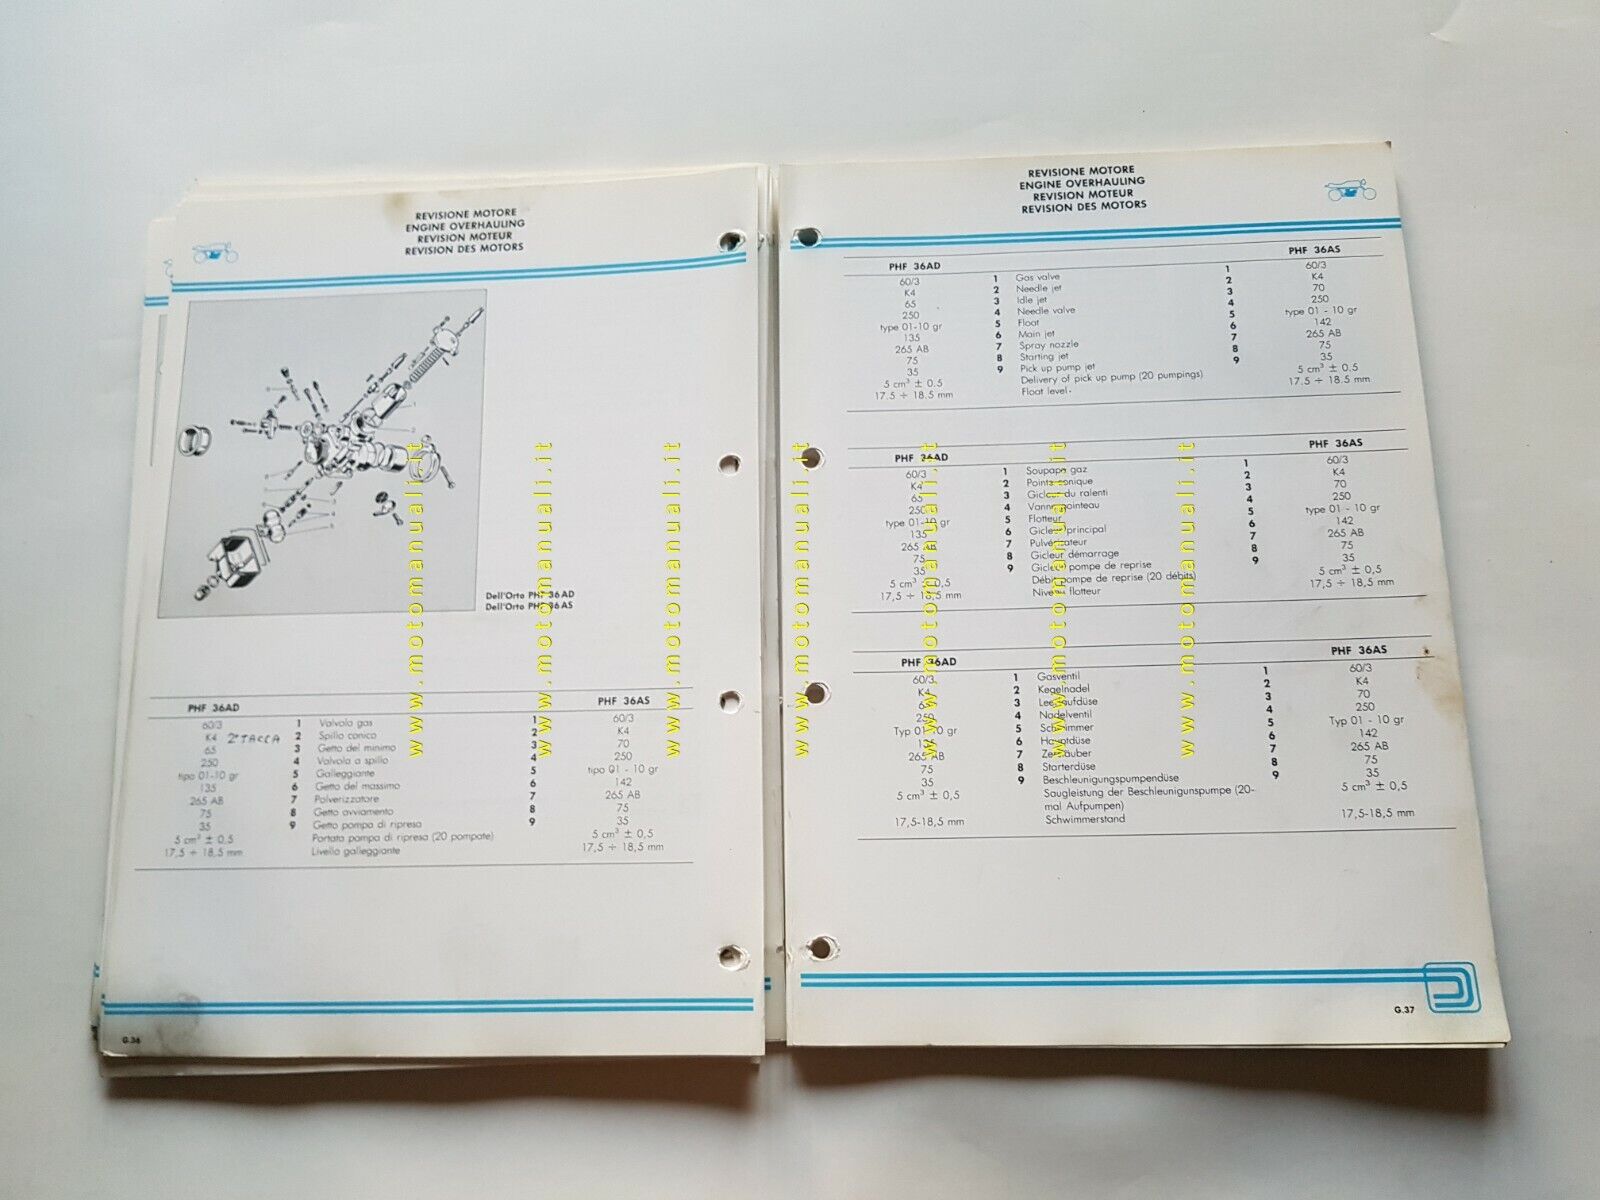 REVISIONE MOTORE
ENGINE OVERHAULING
REVISION MOTEUR
REVISION DES MOTORS
Dell'Orto PHF 36 AD
Dell'Orto PHF 36 AS
PHF 36AD PHF 36AS
60/3 1 Valvola gas 1 60/3
K4 2ª TACCA 2 Spillo conico 2 K4
65 3 Getto del minimo 3 70
250 4 Valvola a spillo 4 250
tipo 01-10 gr 5 Galleggiante 5 tipo 01 - 10 gr
135 6 Getto del massimo 6 142
265 AB 7 Polverizzatore 7 265 AB
75 8 Getto avviamento 8 75
35 9 Getto pompa di ripresa 9 35
5 cm³ ± 0,5 Portata pompa di ripresa (20 pompate) 5 cm³ ± 0,5
17,5 ÷ 18,5 mm Livello galleggiante 17,5 ÷ 18,5 mm
G.36
REVISIONE MOTORE
ENGINE OVERHAULING
REVISION MOTEUR
REVISION DES MOTORS
PHF 36AD PHF 36AS
60/3 1 Gas valve 1 60/3
K4 2 Needle jet 2 K4
65 3 Idle jet 3 70
250 4 Needle valve 4 250
type 01-10 gr 5 Float 5 type 01 - 10 gr
135 6 Main jet 6 142
265 AB 7 Spray nozzle 7 265 AB
75 8 Starting jet 8 75
35 9 Pick up pump jet 9 35
5 cm³ ± 0.5 Delivery of pick up pump (20 pumpings) 5 cm³ ± 0.5
17.5 ÷ 18.5 mm Float level. 17.5 ÷ 18.5 mm
PHF 36AD PHF 36AS
60/3 1 Soupape gaz 1 60/3
K4 2 Pointe conique 2 K4
65 3 Gicleur du ralenti 3 70
250 4 Vanne pointeau 4 250
type 01-10 gr 5 Flotteur 5 type 01 - 10 gr
135 6 Gicleur principal 6 142
265 AB 7 Pulvérisateur 7 265 AB
75 8 Gicleur démarrage 8 75
35 9 Gicleur pompe de reprise 9 35
5 cm³ ± 0,5 Débit pompe de reprise (20 débits) 5 cm³ ± 0,5
17,5 ÷ 18,5 mm Niveau flotteur 17,5 ÷ 18,5 mm
PHF 36AD PHF 36AS
60/3 1 Gasventil 1 60/3
K4 2 Kegelnadel 2 K4
65 3 Leerlaufdüse 3 70
250 4 Nadelventil 4 250
Typ 01-10 gr 5 Schwimmer 5 Typ 01 - 10 gr
135 6 Hauptdüse 6 142
265 AB 7 Zerstäuber 7 265 AB
75 8 Starterdüse 8 75
35 9 Beschleunigungspumpendüse 9 35
5 cm³ ± 0,5 Saugleistung der Beschleunigunspumpe (20- 5 cm³ ± 0,5
mal Aufpumpen)
17,5-18,5 mm Schwimmerstand 17,5-18,5 mm
G.37
www.motomanuali.it
www.motomanuali.it
www.motomanuali.it
www.motomanuali.it
www.motomanuali.it
www.motomanuali.it
www.motomanuali.it